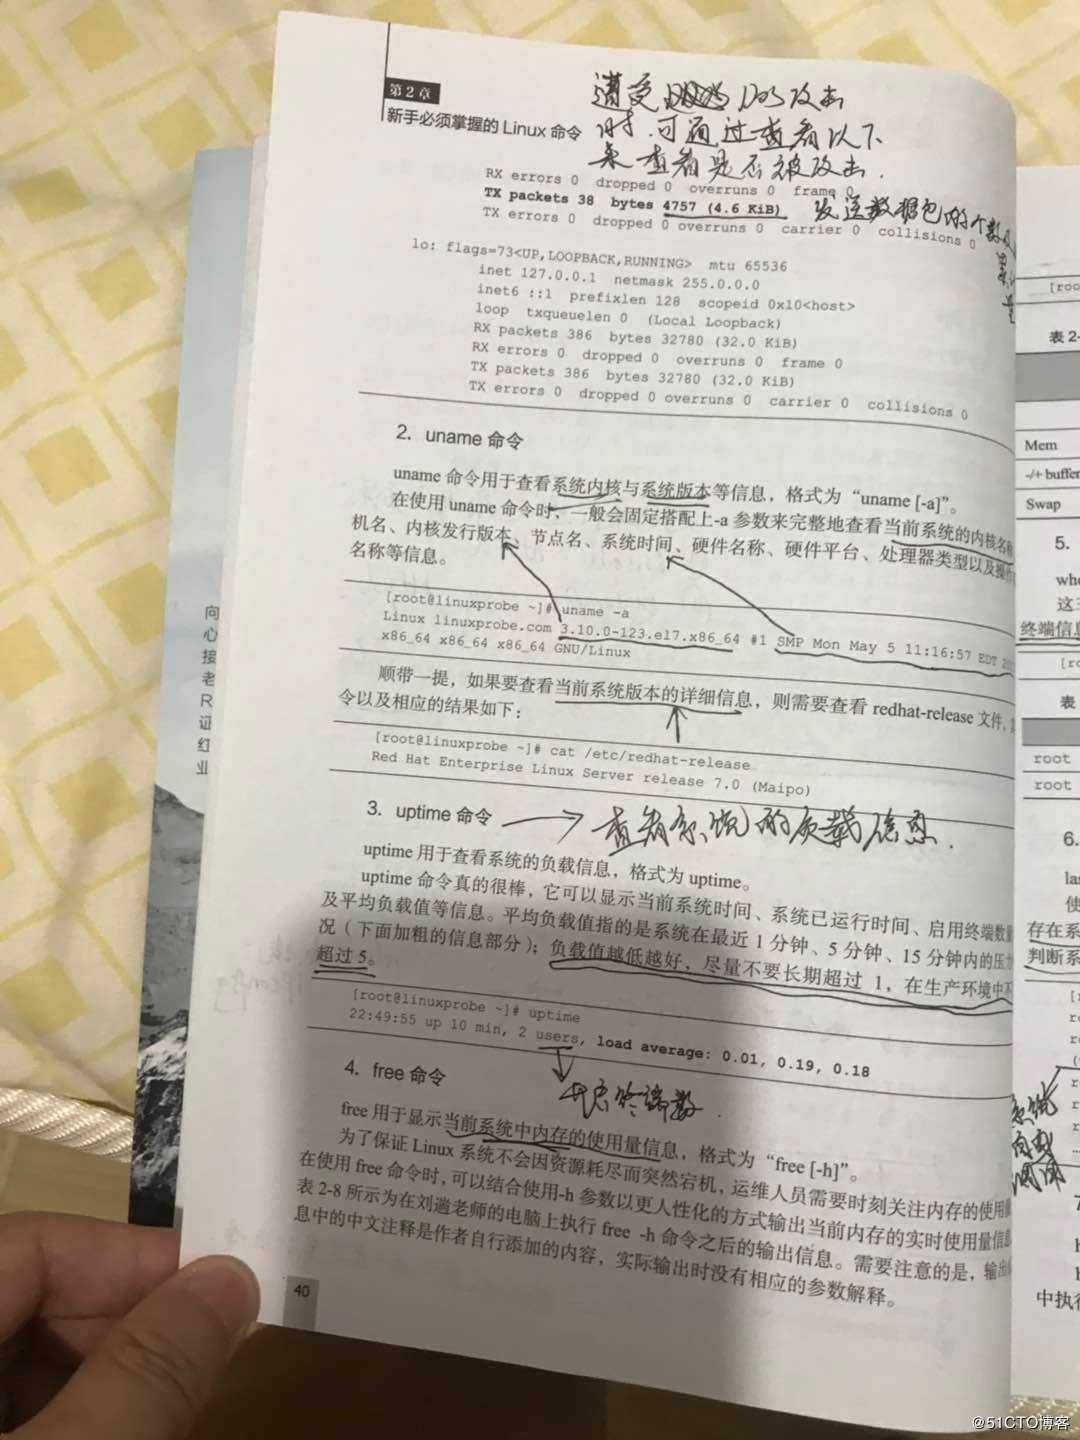 第2章
新手必须掌握的Linux命令
遭受 Dos攻击
时.可通过查看以下
来查看是否被攻击.
RX errors 0 dropped 0 overruns 0 frame 0
TX packets 38 bytes 4757 (4.6 KiB)
发送数据包的个数及
TX errors 0 dropped 0 overruns 0 carrier 0 collisions 0
lo: flags=73<UP,LOOPBACK,RUNNING> mtu 65536
inet 127.0.0.1 netmask 255.0.0.0
inet6 ::1 prefixlen 128 scopeid 0x10<host>
loop txqueuelen 0 (Local Loopback)
RX packets 386 bytes 32780 (32.0 KiB)
RX errors 0 dropped 0 overruns 0 frame 0
TX packets 386 bytes 32780 (32.0 KiB)
TX errors 0 dropped 0 overruns 0 carrier 0 collisions 0
2. uname 命令
uname 命令用于查看系统内核与系统版本等信息，格式为“uname [-a]”。
在使用 uname 命令时，一般会固定搭配上-a 参数来完整地查看当前系统的内核名称、
机名、内核发行版本、节点名、系统时间、硬件名称、硬件平台、处理器类型以及操作
名称等信息。
[root@linuxprobe ~]# uname -a
Linux linuxprobe.com 3.10.0-123.el7.x86_64 #1 SMP Mon May 5 11:16:57 EDT 20
x86_64 x86_64 x86_64 GNU/Linux
顺带一提，如果要查看当前系统版本的详细信息，则需要查看 redhat-release 文件，
令以及相应的结果如下：
[root@linuxprobe ~]# cat /etc/redhat-release
Red Hat Enterprise Linux Server release 7.0 (Maipo)
3. uptime 命令
查看系统的负载信息.
uptime 用于查看系统的负载信息，格式为 uptime。
uptime 命令真的很棒，它可以显示当前系统时间、系统已运行时间、启用终端数量
及平均负载值等信息。平均负载值指的是系统在最近 1 分钟、5 分钟、15 分钟内的压力
况（下面加粗的信息部分）；负载值越低越好，尽量不要长期超过 1，在生产环境中不
超过 5。
[root@linuxprobe ~]# uptime
22:49:55 up 10 min, 2 users, load average: 0.01, 0.19, 0.18
终端数
4. free 命令
free 用于显示当前系统中内存的使用量信息，格式为“free [-h]”。
为了保证 Linux 系统不会因资源耗尽而突然宕机，运维人员需要时刻关注内存的使用量
在使用 free 命令时，可以结合使用-h 参数以更人性化的方式输出当前内存的实时使用量信息
表 2-8 所示为在刘遄老师的电脑上执行 free -h 命令之后的输出信息。需要注意的是，输出
息中的中文注释是作者自行添加的内容，实际输出时没有相应的参数解释。
40
向
心
接
老
R
证
红
业
[roo
表 2-
Mem
-/+ buffer
Swap
5.
who
这
终端信息
[r
表
root
root
6.
las
使
存在系
判断系
系统
调用
中执行
@51CTO博客